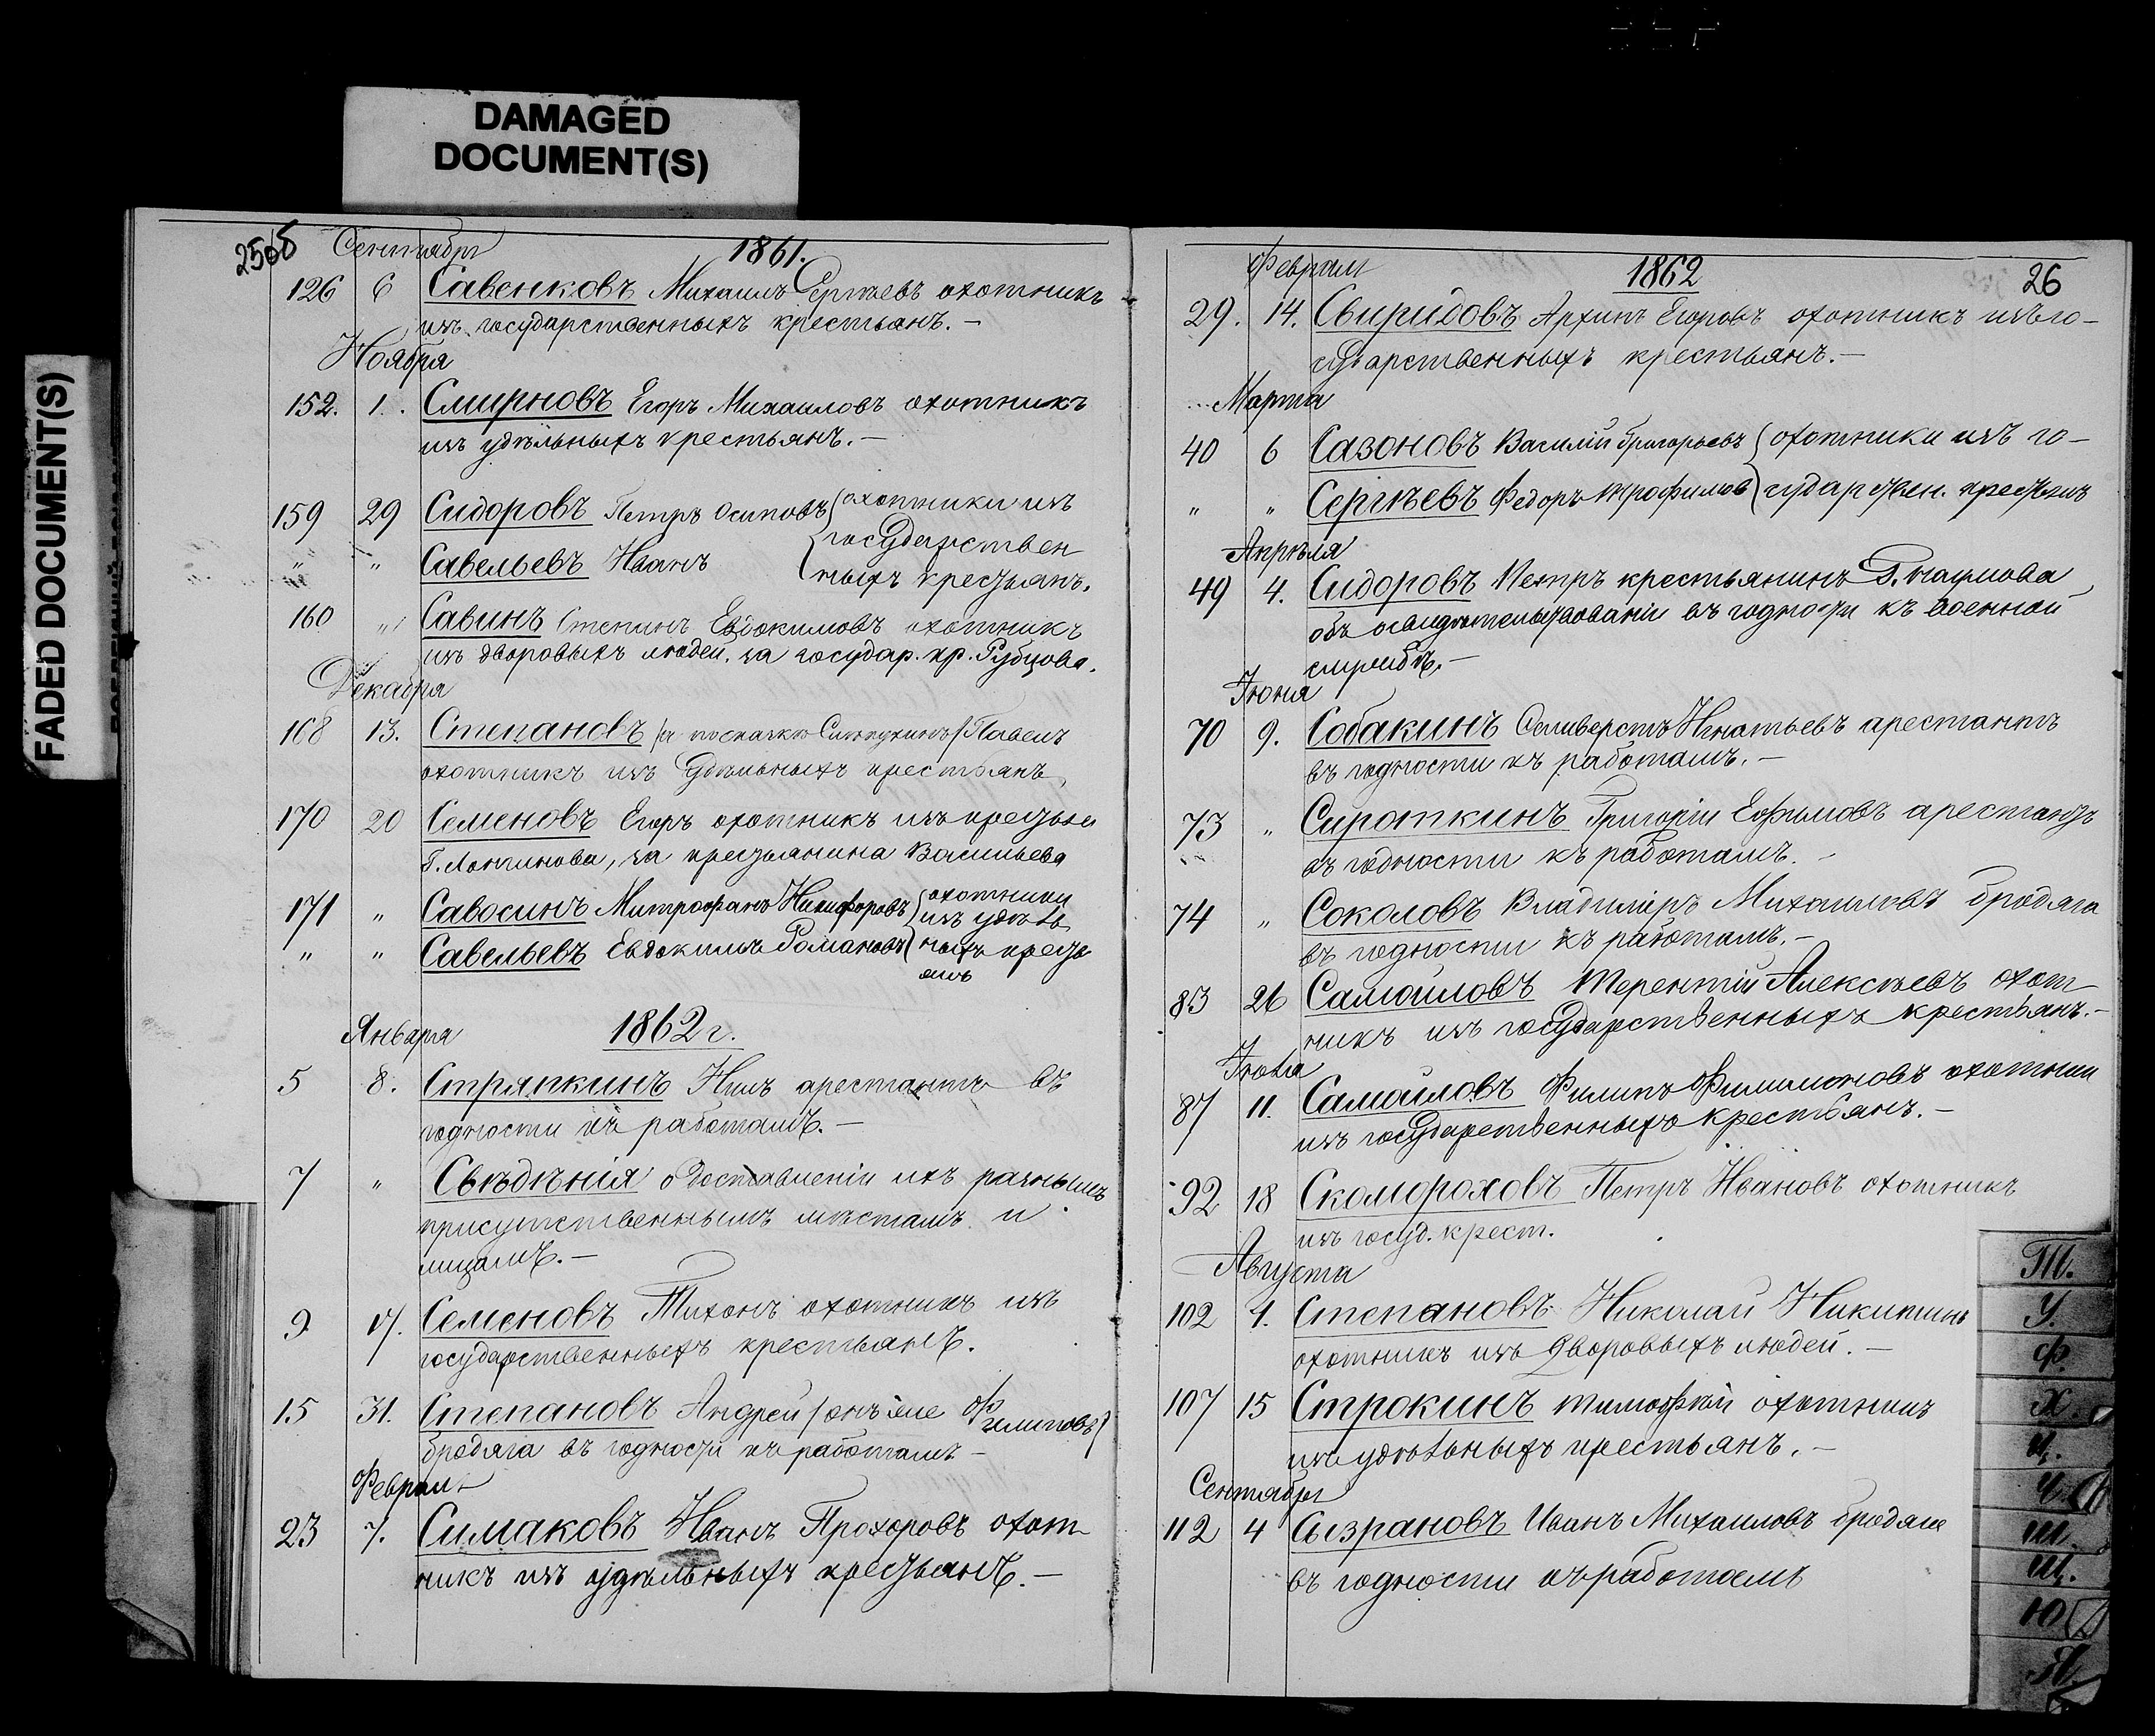 DAMAGED
DOCUMENT(S)
FADED DOCUMENT(S)
25об
Сентября 1861.
126 6 Савенковъ Михаилъ Сергѣевъ охотникъ
изъ государственныхъ крестьянъ.—
Ноября
152. 1. Смирновъ Егоръ Михаиловъ охотникъ
изъ удѣльныхъ крестьянъ.—
159 29 Сидоровъ Петръ Осиповъ охотники изъ
государствен
" " Савельевъ Иванъ ныхъ крестьянъ.
160 " Савинъ Степанъ Евдокимовъ охотникъ
изъ дворовыхъ людей, за государ. кр. Рубцова.
Декабря
168 13. Степановъ /а по Павелъ
охотникъ изъ удѣльныхъ крестьянъ,
170 20 Семеновъ Егоръ охотникъ изъ крестьян
Г. Логинова, за крестьянина Васильева
171 " Савосинъ Митрофанъ Никифоровъ охотники
изъ удѣль
" " Савельевъ Евдокимъ Романовъ ныхъ кресть
янъ
Января 1862 г.
5 8. Стряпкинъ Нилъ арестантъ въ
годности къ работамъ.—
7 " Свѣдѣнія о доставленіи ихъ разнымъ
присутственнымъ мѣстамъ и
лицамъ.—
9 17. Семеновъ Тихонъ охотникъ изъ
государственныхъ крестьянъ.
15 31. Степановъ Андрей /онъ же Филиповъ/
бродяга въ годности къ работамъ—
Февраля
23 7. Симаковъ Иванъ Прохоровъ охот
никъ изъ удѣльныхъ крестьянъ.—
Февраля 1862 26
29. 14. Свиридовъ Архипъ Егоровъ охотникъ изъ го-
сударственныхъ крестьянъ.—
Марта
40 6 Сазоновъ Василій Григорьевъ охотники изъ го-
" " Сергѣевъ Федоръ Трофимов сударствен. крестьянъ
Апрѣля
49 4. Сидоровъ Петръ крестьянинъ Г. Наумова
объ освидѣтельствованіи въ годности къ военной
службѣ.—
Іюня
70 9. Собакинъ Селиверстъ Игнатьевъ арестантъ
въ годности къ работамъ.—
73 " Сироткинъ Григорій Ефимовъ арестантъ
въ годности къ работамъ.—
74 " Соколовъ Владиміръ Михаиловъ бродяга
въ годности къ работамъ.—
83 26 Самойловъ Терентій Алексѣевъ охот
никъ изъ государственныхъ крестьянъ.—
Іюля
87 11. Самойловъ Филипъ Филимоновъ охотник
изъ государственныхъ крестьянъ.—
92 18 Скоморохов Петръ Ивановъ охотникъ
изъ госуд. крест.
Августа
102 1. Степановъ Николай Никитинъ
охотникъ изъ дворовыхъ людей.—
107 15 Строкинъ Тимофѣй охотникъ
изъ удѣльныхъ крестьянъ.—
Сентября
112 4 Сызрановъ Иванъ Михаиловъ бродяга
въ годности къ работамъ
Т.
У.
Ф.
Х.
Ц.
Ч.
Ш.
Щ.
Ю
Я.